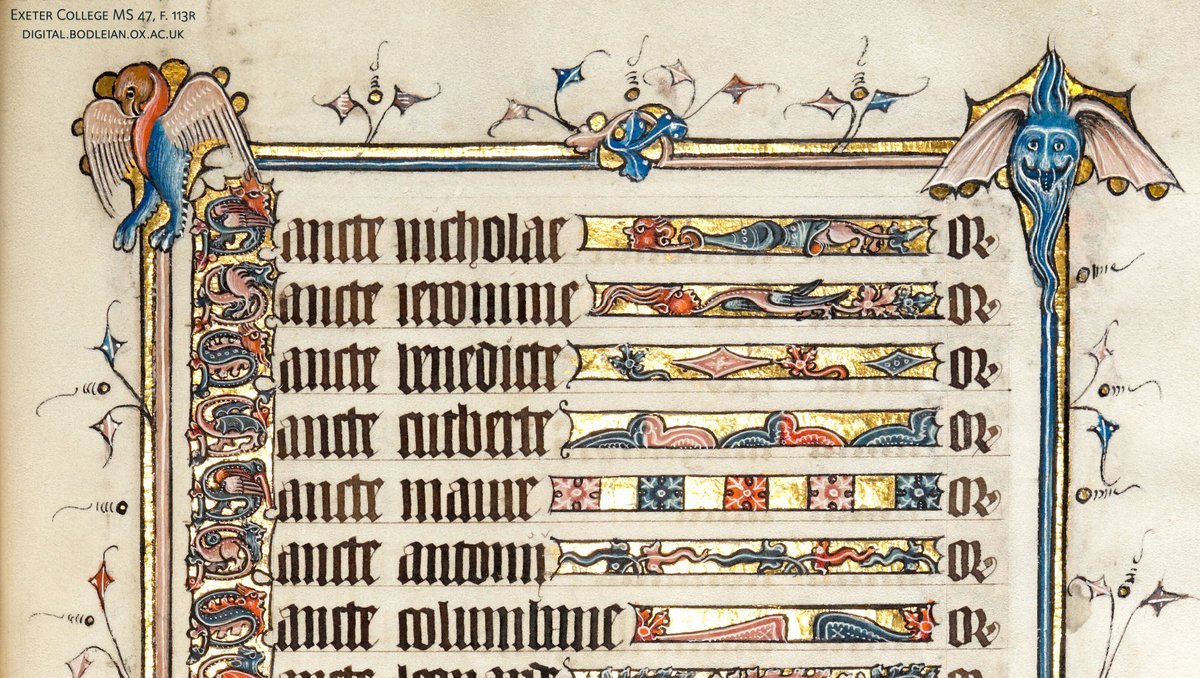 EXETER COLLEGE MS 47, F. 113R
DIGITAL.BODLEIAN.OX.AC.UK
Sancte nicholae OR
Sancte ieronime OR
Sancte benedicte OR
Sancte cutberte OR
Sancte maure OR
Sancte antonii OR
Sancte columbane OR
Sancte leonarde